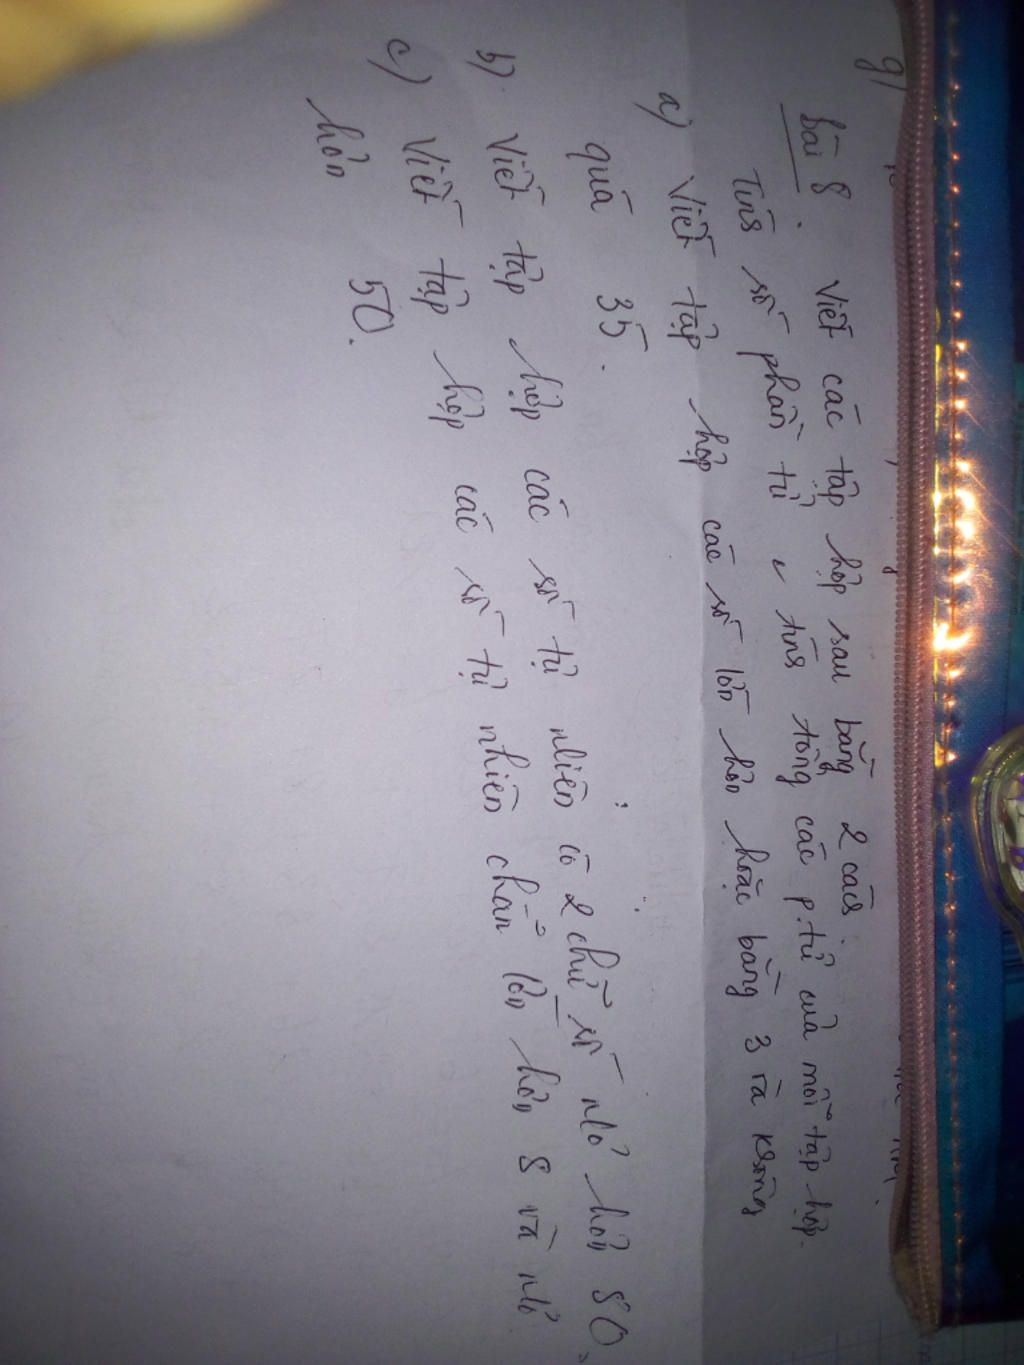 g)
Bài 8. Viết các tập hợp sau bằng 2 cách.
Tính số phần tử, tính tổng các p.tử của mỗi tập hợp.
a) Viết tập hợp các số lớn hơn hoặc bằng 3 và không
quá 35.
b). Viết tập hợp các số tự nhiên có 2 chữ số nhỏ hơn 80.
c) Viết tập hợp các số tự nhiên chẵn lớn hơn 8 và nhỏ
hơn 50.